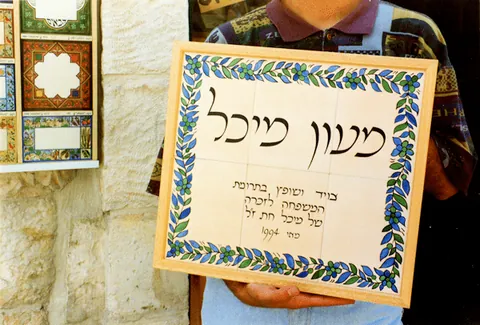 מעון מיכל
צויד ושופץ בתרומת
המשפחה לזכרה
של מיכל חת ז"ל
מאי 1994